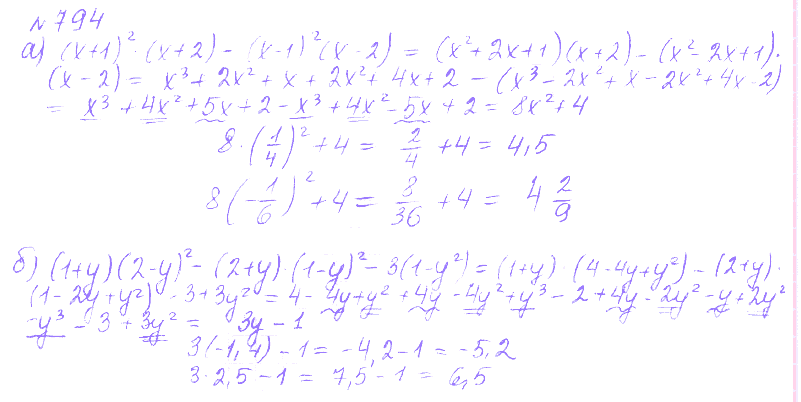 № 794
а) (x+1)²·(x+2) - (x-1)²(x-2) = (x²+2x+1)(x+2) - (x²-2x+1)·
(x-2) = x³+2x²+x+2x²+4x+2 - (x³-2x²+x-2x²+4x-2)
= x³+4x²+5x+2-x³+4x²-5x+2 = 8x²+4
8·(1/4)²+4 = 2/4 +4 = 4,5
8(-1/6)²+4 = 8/36 +4 = 4 2/9
б) (1+y)(2-y)² - (2+y)·(1-y)² - 3(1-y²) = (1+y)·(4-4y+y²) - (2+y)·
(1-2y+y²) - 3+3y² = 4-4y+y²+4y-4y²+y³-2+4y-2y²-y+2y²
-y³-3+3y² = 3y-1
3(-1,4)-1 = -4,2-1 = -5,2
3·2,5-1 = 7,5-1 = 6,5